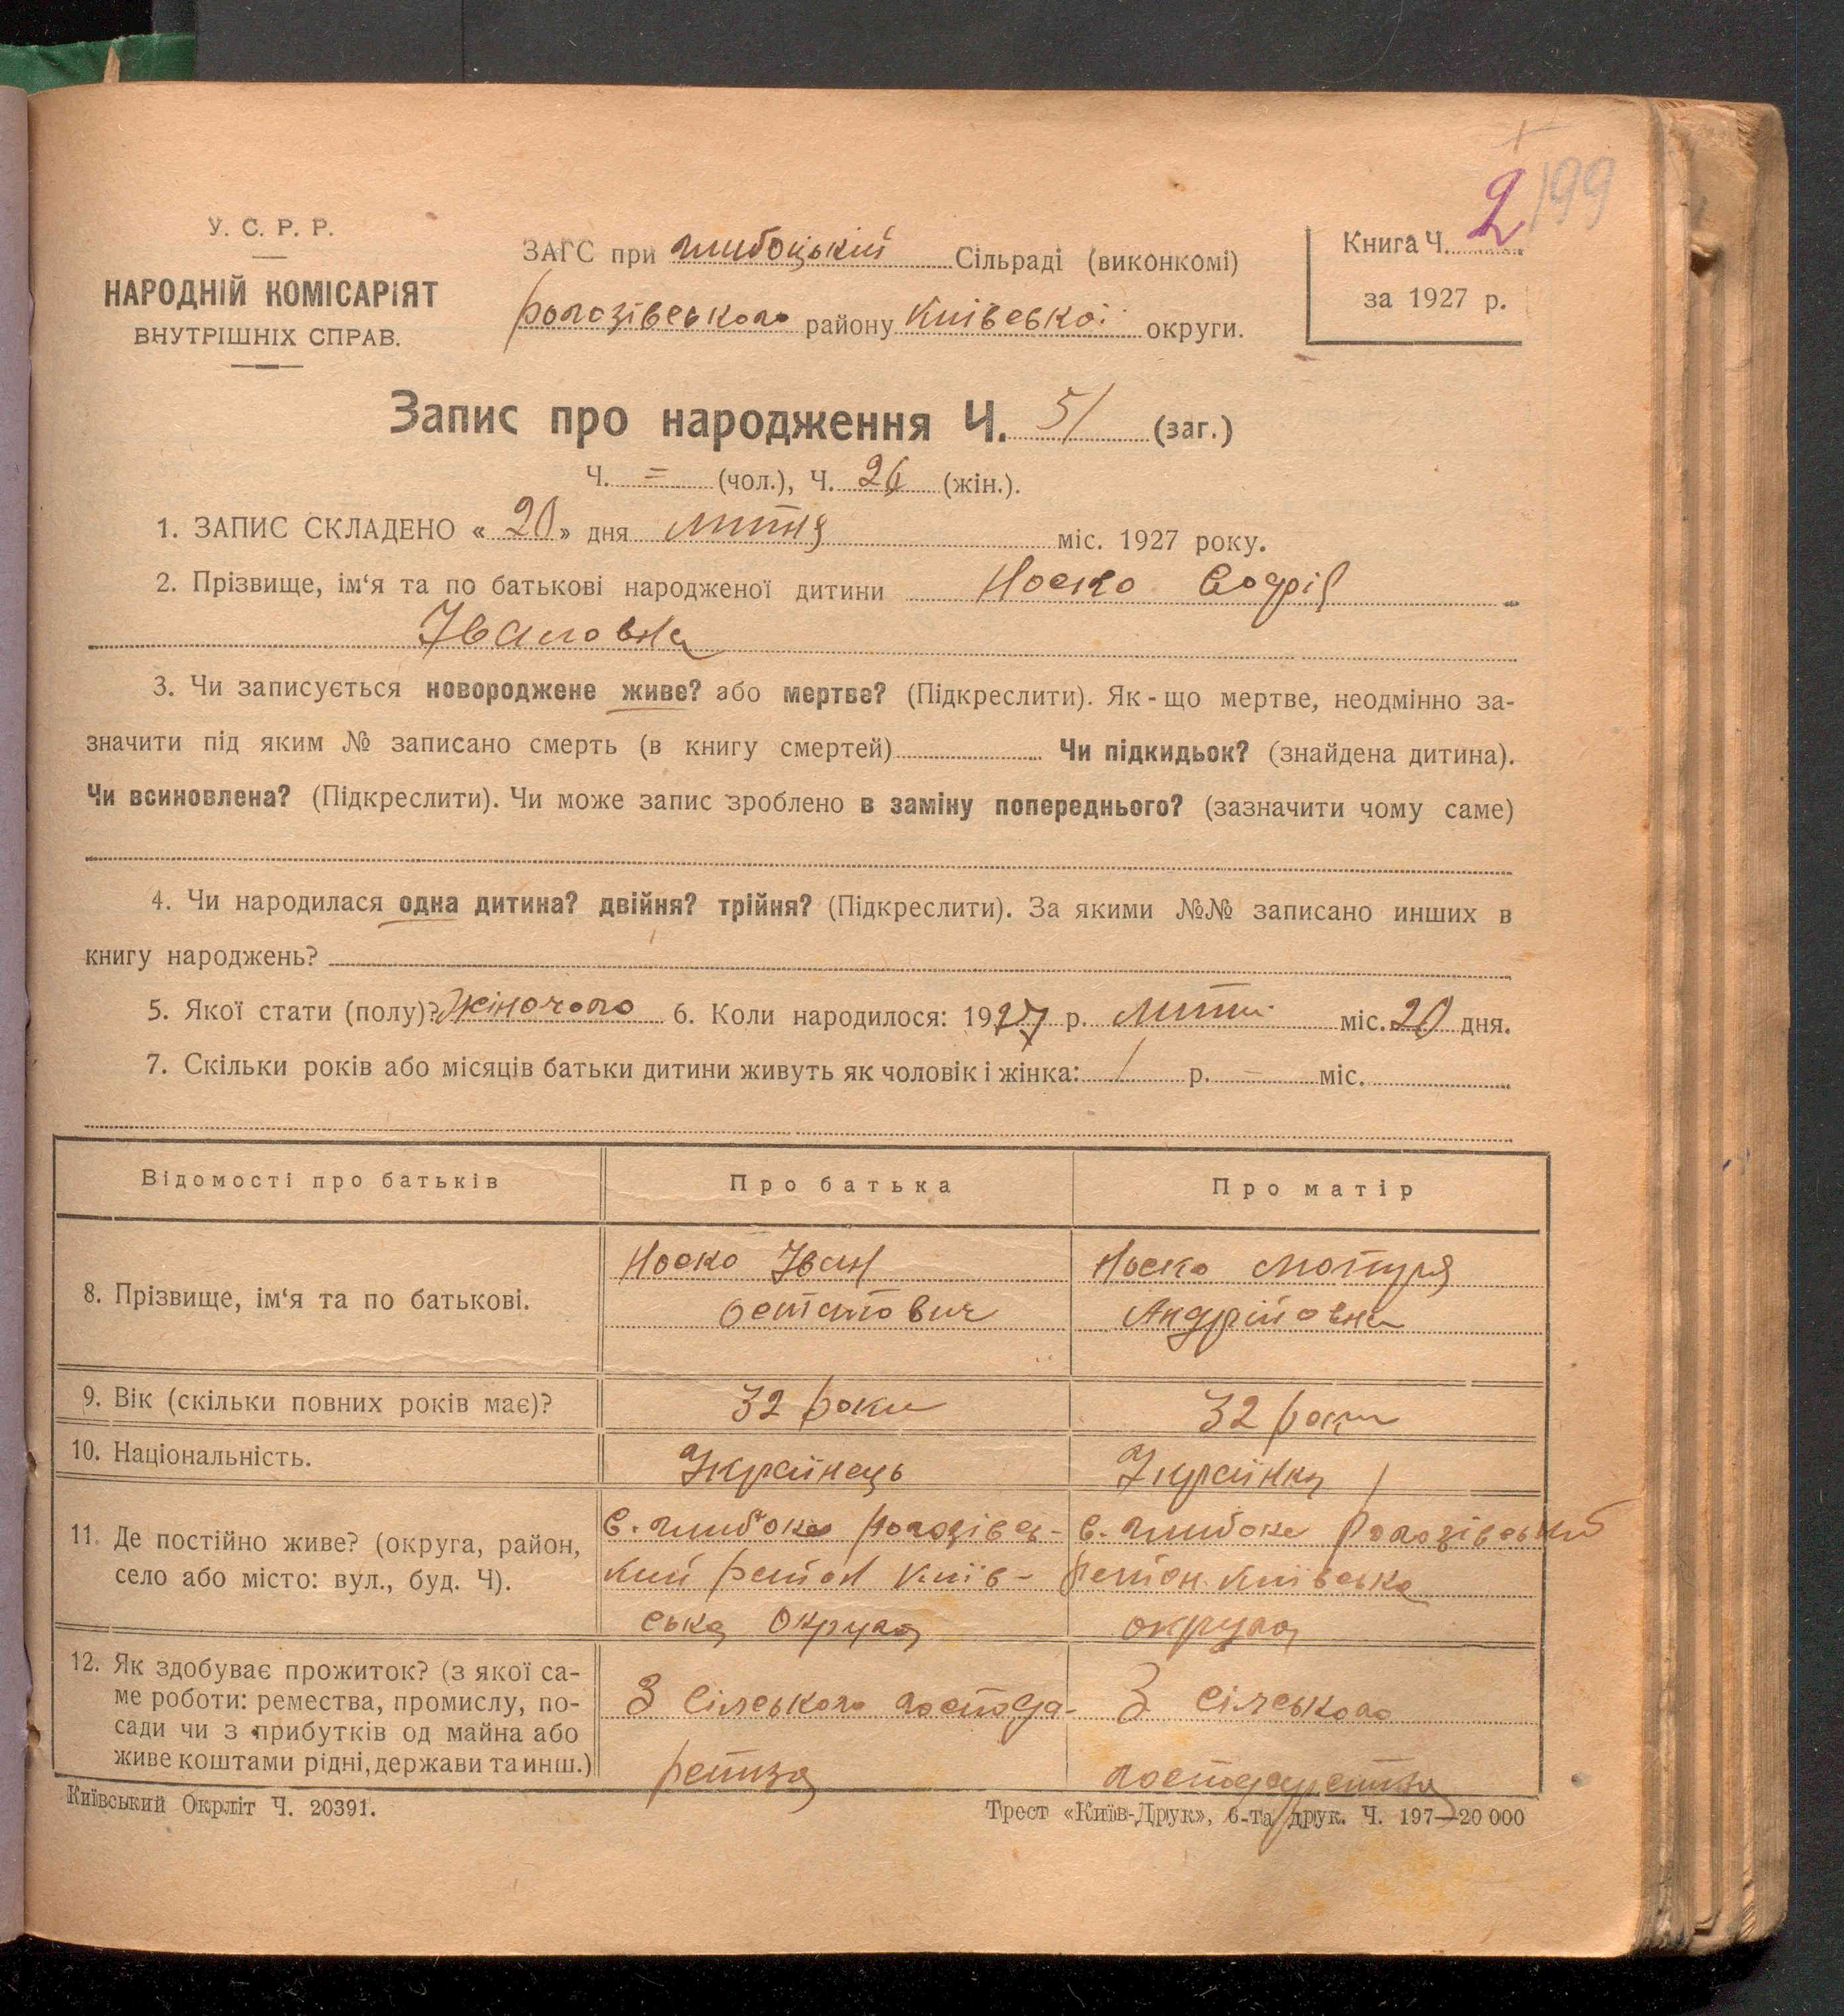 2 199
У. С. Р. Р.
НАРОДНІЙ КОМІСАРІЯТ
ВНУТРІШНІХ СПРАВ.
ЗАГС при глибоцькій Сільраді (виконкомі)
рогозівського району Київської округи.
Книга Ч.
за 1927 р.
Запис про народження Ч. 51 (заг.)
Ч. = (чол.), Ч. 26 (жін.).
1. ЗАПИС СКЛАДЕНО « 20 » дня липня міс. 1927 року.
2. Прізвище, ім‘я та по батькові народженої дитини Носко
Івановна
3. Чи записується новороджене живе? або мертве? (Підкреслити). Як-що мертве, неодмінно за-
значити під яким № записано смерть (в книгу смертей) Чи підкидьок? (знайдена дитина).
Чи всиновлена? (Підкреслити). Чи може запис зроблено в заміну попереднього? (зазначити чому саме)
4. Чи народилася одна дитина? двійня? трійня? (Підкреслити). За якими №№ записано инших в
книгу народжень?
5. Якої стати (полу)? жіночого 6. Коли народилося: 1927 р. міс. 20 дня.
7. Скільки років або місяців батьки дитини живуть як чоловік і жінка: 1 р. – міс.
Відомості про батьків Про батька Про матір
8. Прізвище, ім‘я та по батькові.
Носко Іван
остапович
Носко мотуря
Андрійовна
9. Вік (скільки повних років має)? 32 роки 32 роки
10. Національність. Українець Українка
11. Де постійно живе? (округа, район,
село або місто: вул., буд. Ч).
с. глибоке рогозівсь-
кий район Київ-
ська округа
с. глибоке рогозівський
район Київська
округа
12. Як здобуває прожиток? (з якої са-
ме роботи: ремества, промислу, по-
сади чи з прибутків од майна або
живе коштами рідні, держави та инш.)
З сільського господа-
рства
З сільського
господарства
Київський Окрліт Ч. 20391.
Трест «Київ-Друк», 6-та друк. Ч. 197—20 000